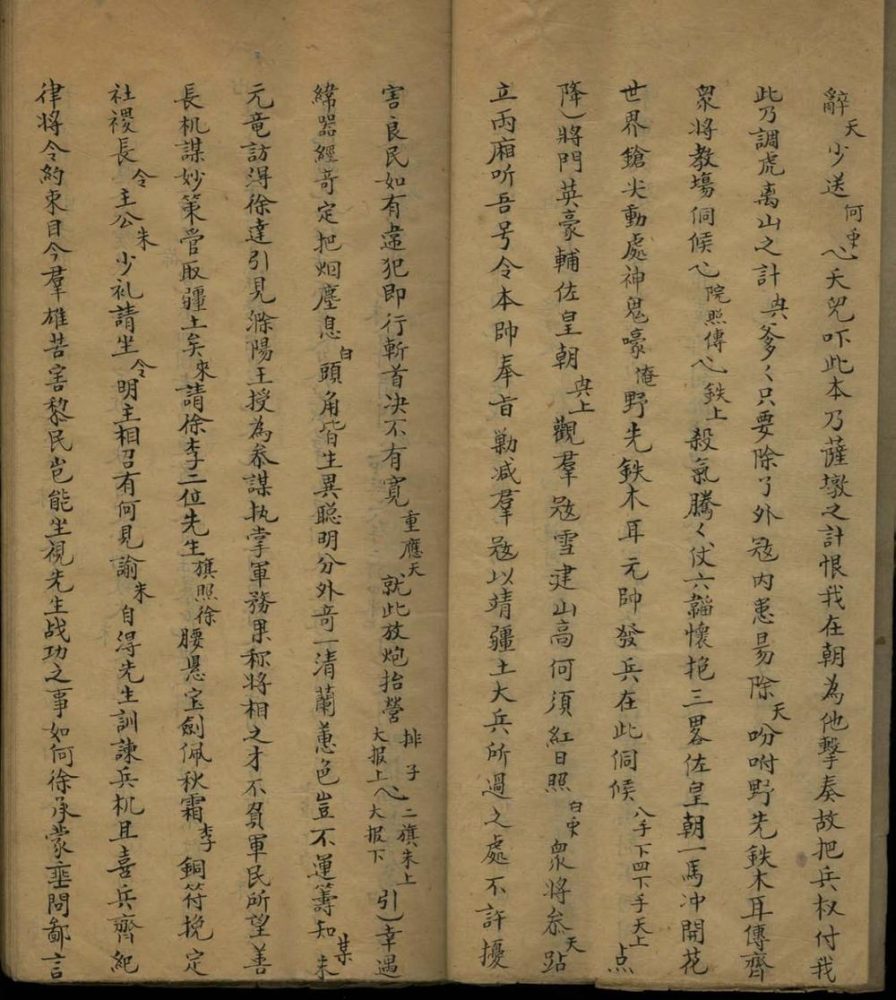 辭天少送何更心天咒吓此本乃薩墩之計恨我在朝為他擊奏故把兵权付我
此乃調虎离山之計典爹〻只要除了外冦内患易除天吩咐野先鉄木耳傳齊
衆將教塲伺候心院照傳心鉄上殺氣騰〻仗六韜懷抱三畧佐皇朝一馬冲開花
世界鎗尖動處神鬼嚎俺野先鉄木耳元帥發兵在此伺候八手下四下手天上点
降將門英豪輔佐皇朝典上觀羣冦雪建山高何須紅日照白更衆將叅天跕
立兩廂听吾号令本帥奉旨勦减羣冦以靖疆土大兵所過之處不許擾
害良民如有違犯即行斬首决不有寛重應天就此放炮抬營排子二旗朱上心大报上大报下引幸遇
緯噐經竒定把烟塵息白頭角皆生異聡明分外竒一清蘭蕙色豈不運籌知某朱
元竜訪淂徐達引見滁陽王授為叅謀执掌軍務果称將相之才不負軍民所望善
長机謀妙策管取疆土矣來請徐李二位先生旗照徐腰悬宝劍佩秋霜李銅符挽定
社稷長令主公朱少礼請坐令明主相召有何見諭朱自淂先生訓諫兵机且喜兵齊紀
律將令約束目今羣雄苦害黎民岂能坐視先生战功之事如何徐承蒙垂問鄙言